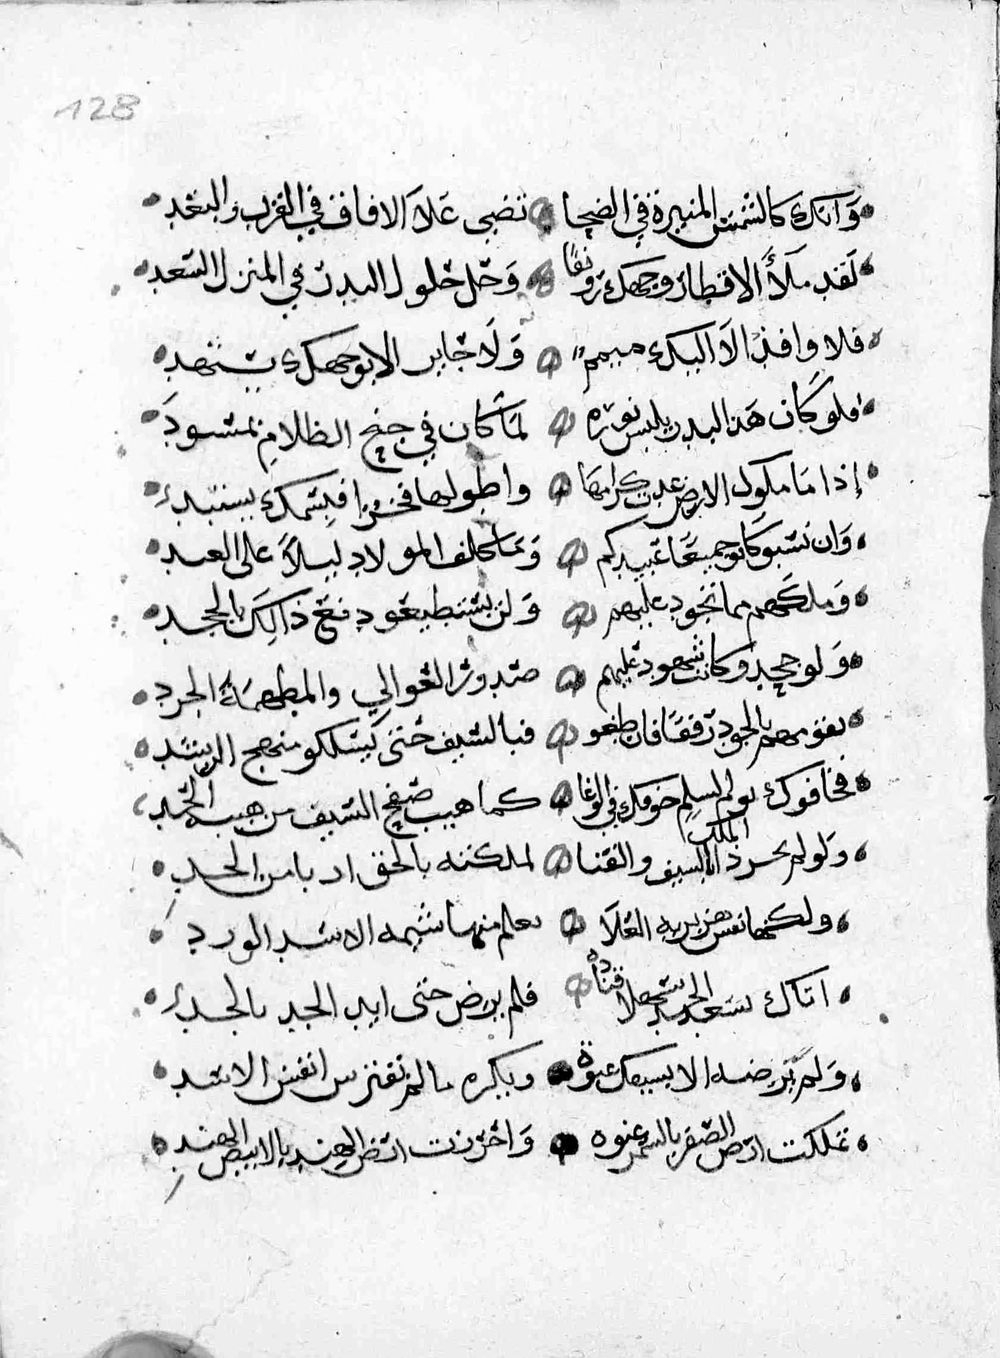 128
وانك كالشمس المنيرة في الضحا تضي علا الافاق في القرب والبعد
لقد ملأ الاقطار وجهك رونقا وحل حلول البدر في المنزل السعد
فلا وافد الا اليك ميمم ولا جاير الا بوجهك يستهد
فلو كان هذا البدر يلبس نوره لما كان في جنح الظلام بمسود
إذا ما ملوك الارض عدت كرامها واطولها فخرا فبسمك يستبد
وان نسبو كانو جميعا عبيدكم وما كلف المولا دليلا على العبد
وملكهم مما تجود عليهم ولن يستطيعو دفع ذالك بالجحد
ولو جحدو كانت شهود عليهم صدور العوالي والمطهمة الجرد
تقومهم بالجود رفقا فان طغو فبالسيف حتى يسلكو منهج الرشد
فخافوك يوم السلم خوفك في الوغا كما هيب صفح السيف من هيبة الحد
ولو لم يحز ذا الملك بالسيف والقنا لملكته بالحق اربا من الحد
ولكنها نفس هزبرية العلا تعلم منها شيمة الاسد الورد
اتاك سعد الجد سهلا قياده فلم يرض حتى ايد الجد بالجد
ولم ترضه الا بسيفك عنوة ويكره ما لم تفترس انفس الاسد
تملكت ارض الصفر بالسمر عنوه واحرزت ارض الهند بالابيض الهند